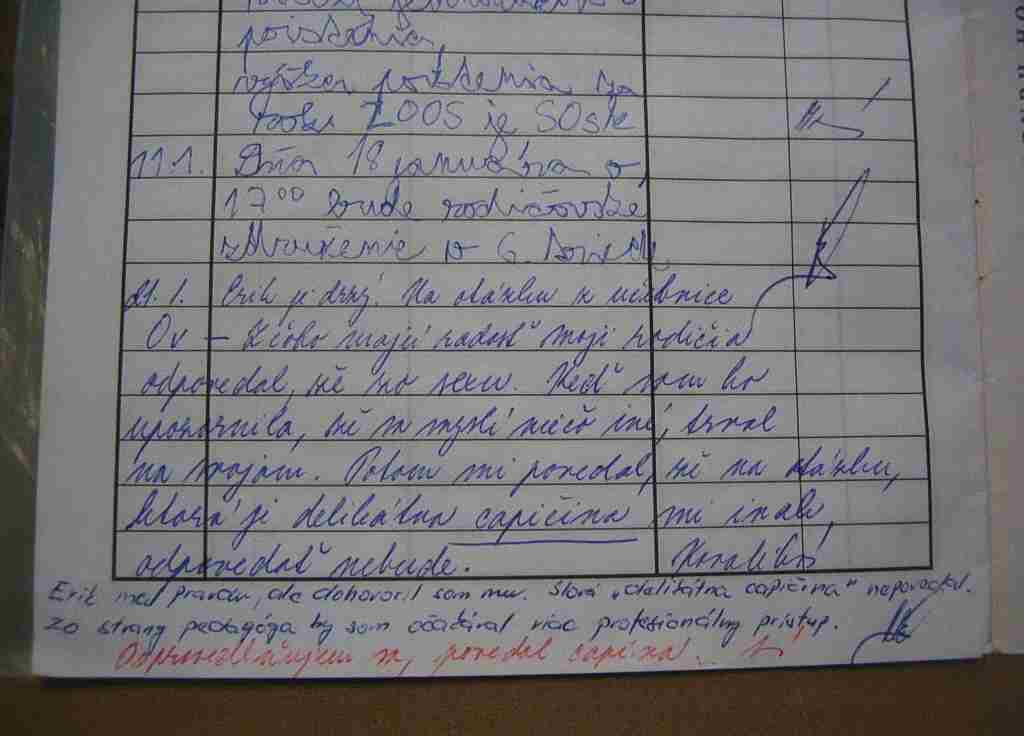 poistenia,
výška poistenia na
rok 2005 je 50sk
11.1. Dňa 18 januára o
17⁰⁰ bude rodičovské
združenie v 6. triede
21. 1. Erik je drzý. Na otázku z učebnice
Ov – Z čoho majú radosť moji rodičia
odpovedal, že zo sexu. Keď som ho
upozornila, že sa myslí niečo iné, trval
na svojom. Potom mi povedal, že na otázku,
ktorá je delikátna capičina mi inak
odpovedať nebude.
Erik mal pravdu, ale dohovoril som mu. Slová „delikátna capičina" nepovedal.
Zo strany pedagóga by som očakával viac profesionálny prístup.
Ospravedlňujem sa, povedal capina.